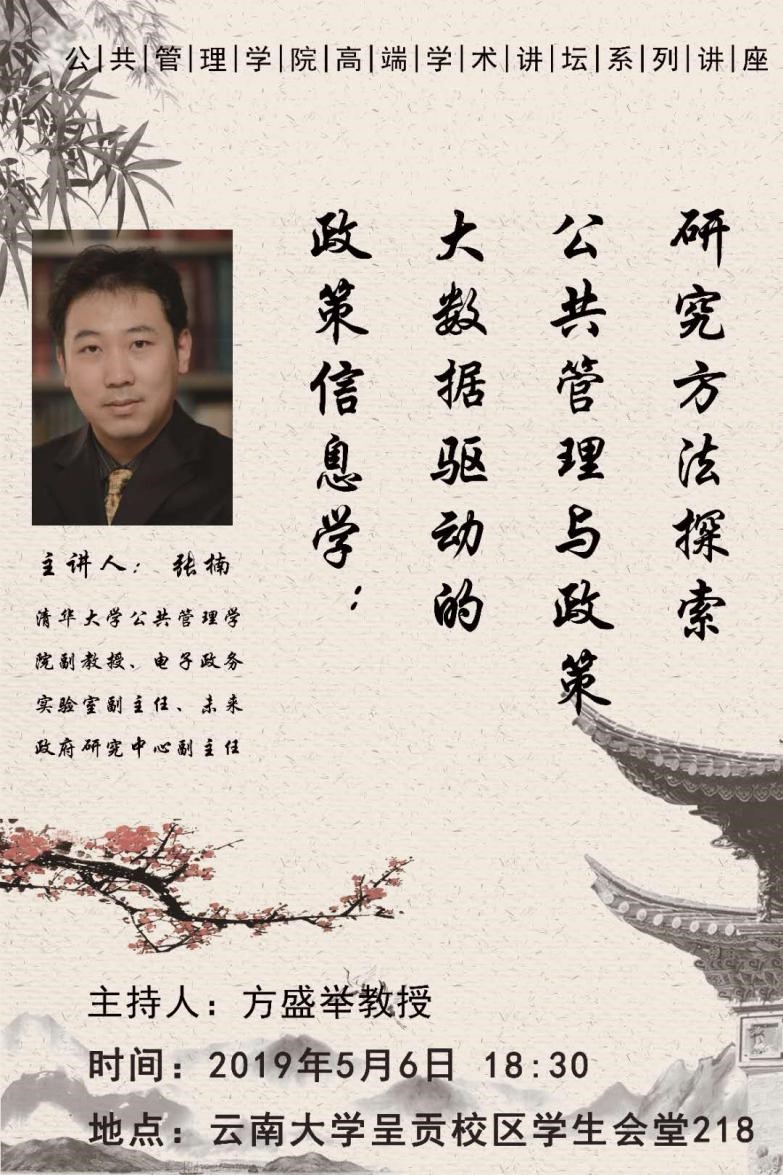 公|共|管|理|学|院|高|端|学|术|讲|坛|系|列|讲|座
政策信息学：
大数据驱动的
公共管理与政策
研究方法探索
主讲人：张楠
清华大学公共管理学
院副教授、电子政务
实验室副主任、未来
政府研究中心副主任
主持人：方盛举教授
时间：2019年5月6日 18:30
地点：云南大学呈贡校区学生会堂218